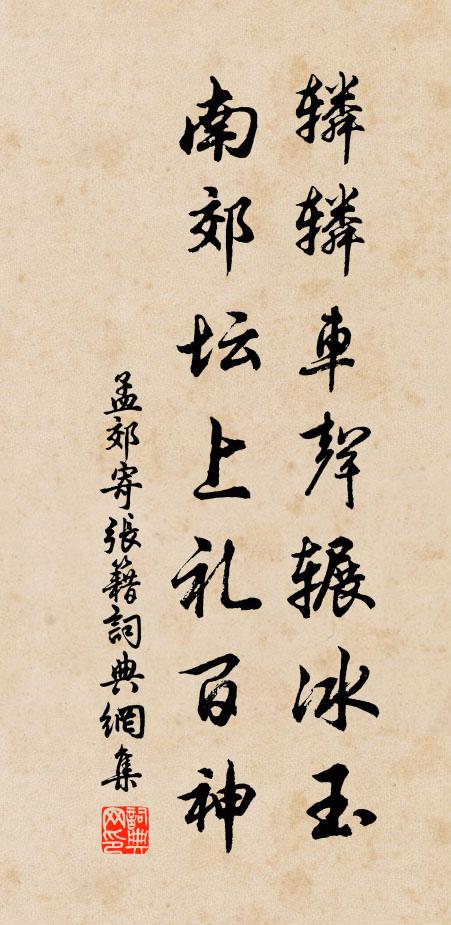 辚辚车聲辗冰玉
南郊坛上礼百神
孟郊寄張籍詞典網集
詞典网印